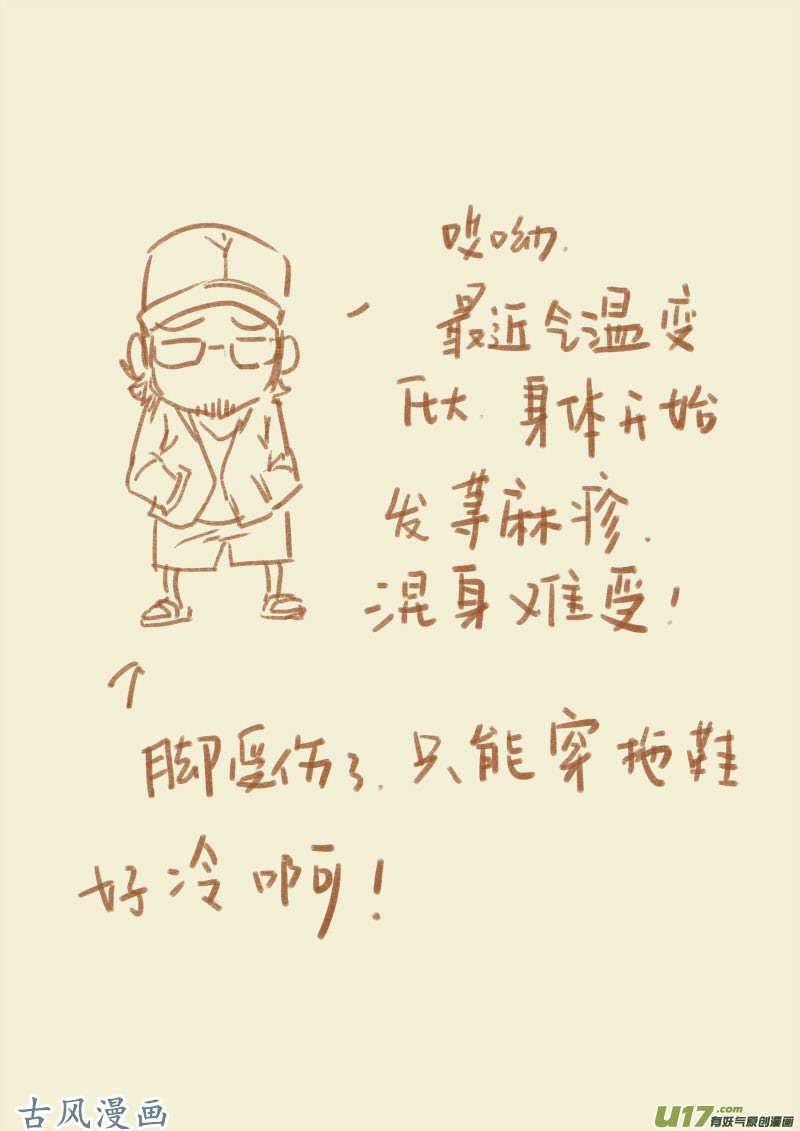 哎呦.
最近气温变
厇大.身体开始
发荨麻疹.
混身难受!
脚受伤了.只能穿拖鞋
好冷啊!
古风漫画
U17.com
有妖气原创漫画